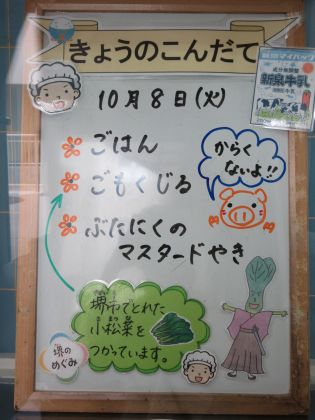 きょうのこんだて
10月8日(火)
ごはん
ごもくじる
ぶたにくの
マスタードやき
からく
ないよ!!
堺市でとれた
こまつな
小松菜を
つかっています。
堺の
めぐみ
成分無調整
新泉牛乳